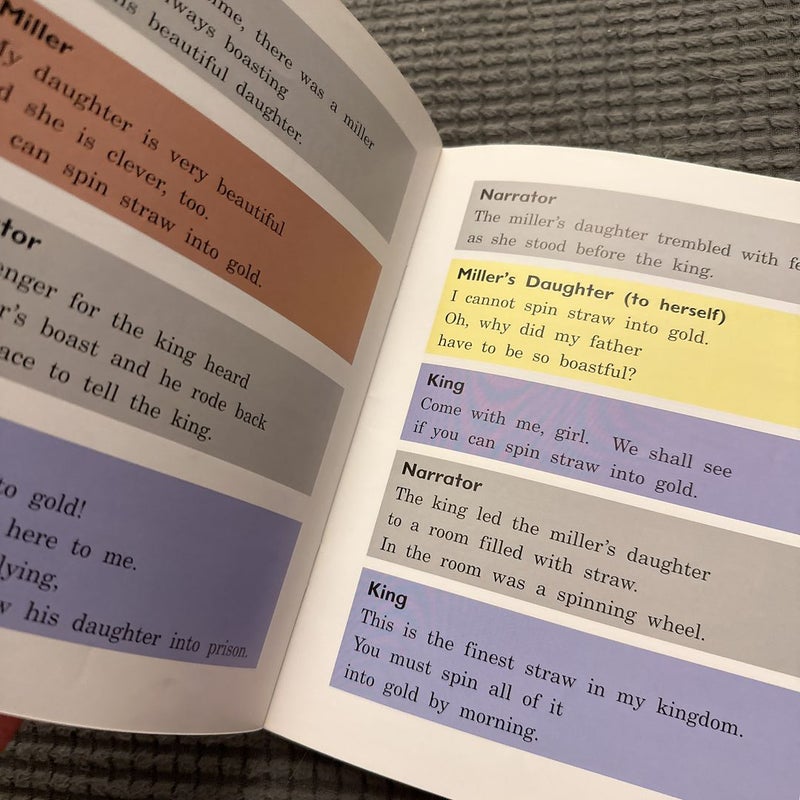 there was a miller
always boasting
his beautiful daughter.
Miller
My daughter is very beautiful
she is clever, too.
can spin straw into gold.
for the king heard
boast and he rode back
to tell the king.
to gold!
here to me.
lying,
his daughter into prison.
Narrator
The miller's daughter trembled with
as she stood before the king.
Miller's Daughter (to herself)
I cannot spin straw into gold.
Oh, why did my father
have to be so boastful?
King
Come with me, girl. We shall see
if you can spin straw into gold.
Narrator
The king led the miller's daughter
to a room filled with straw.
In the room was a spinning wheel.
King
This is the finest straw in my kingdom.
You must spin all of it
into gold by morning.